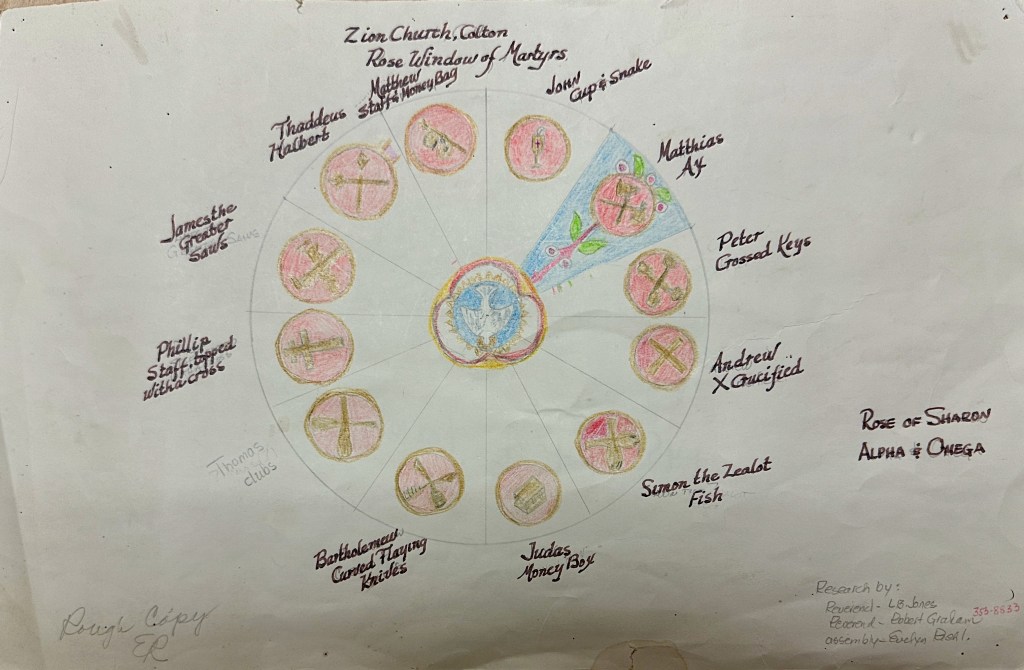 Zion Church, Colton
Rose Window of Martyrs
Matthew
Staff & Money Bag
JOHN
Cup & Snake
Thaddeus
Halbert
Matthias
Ax
James the
Greater
Saws
Peter
Crossed Keys
Phillip
Staff, topped
with a cross
Andrew
X Crucified
ROSE OF SHARON
ALPHA & OMEGA
Thamos
clubs
Simon the Zealot
Fish
Bartholemew
Curved Flaying
Knives
Judas
Money Box
Rough Copy
ER
Research by:
Reverend - LB Jones
Reverend - Robert Graham
353-8533
assembly - Evelyn